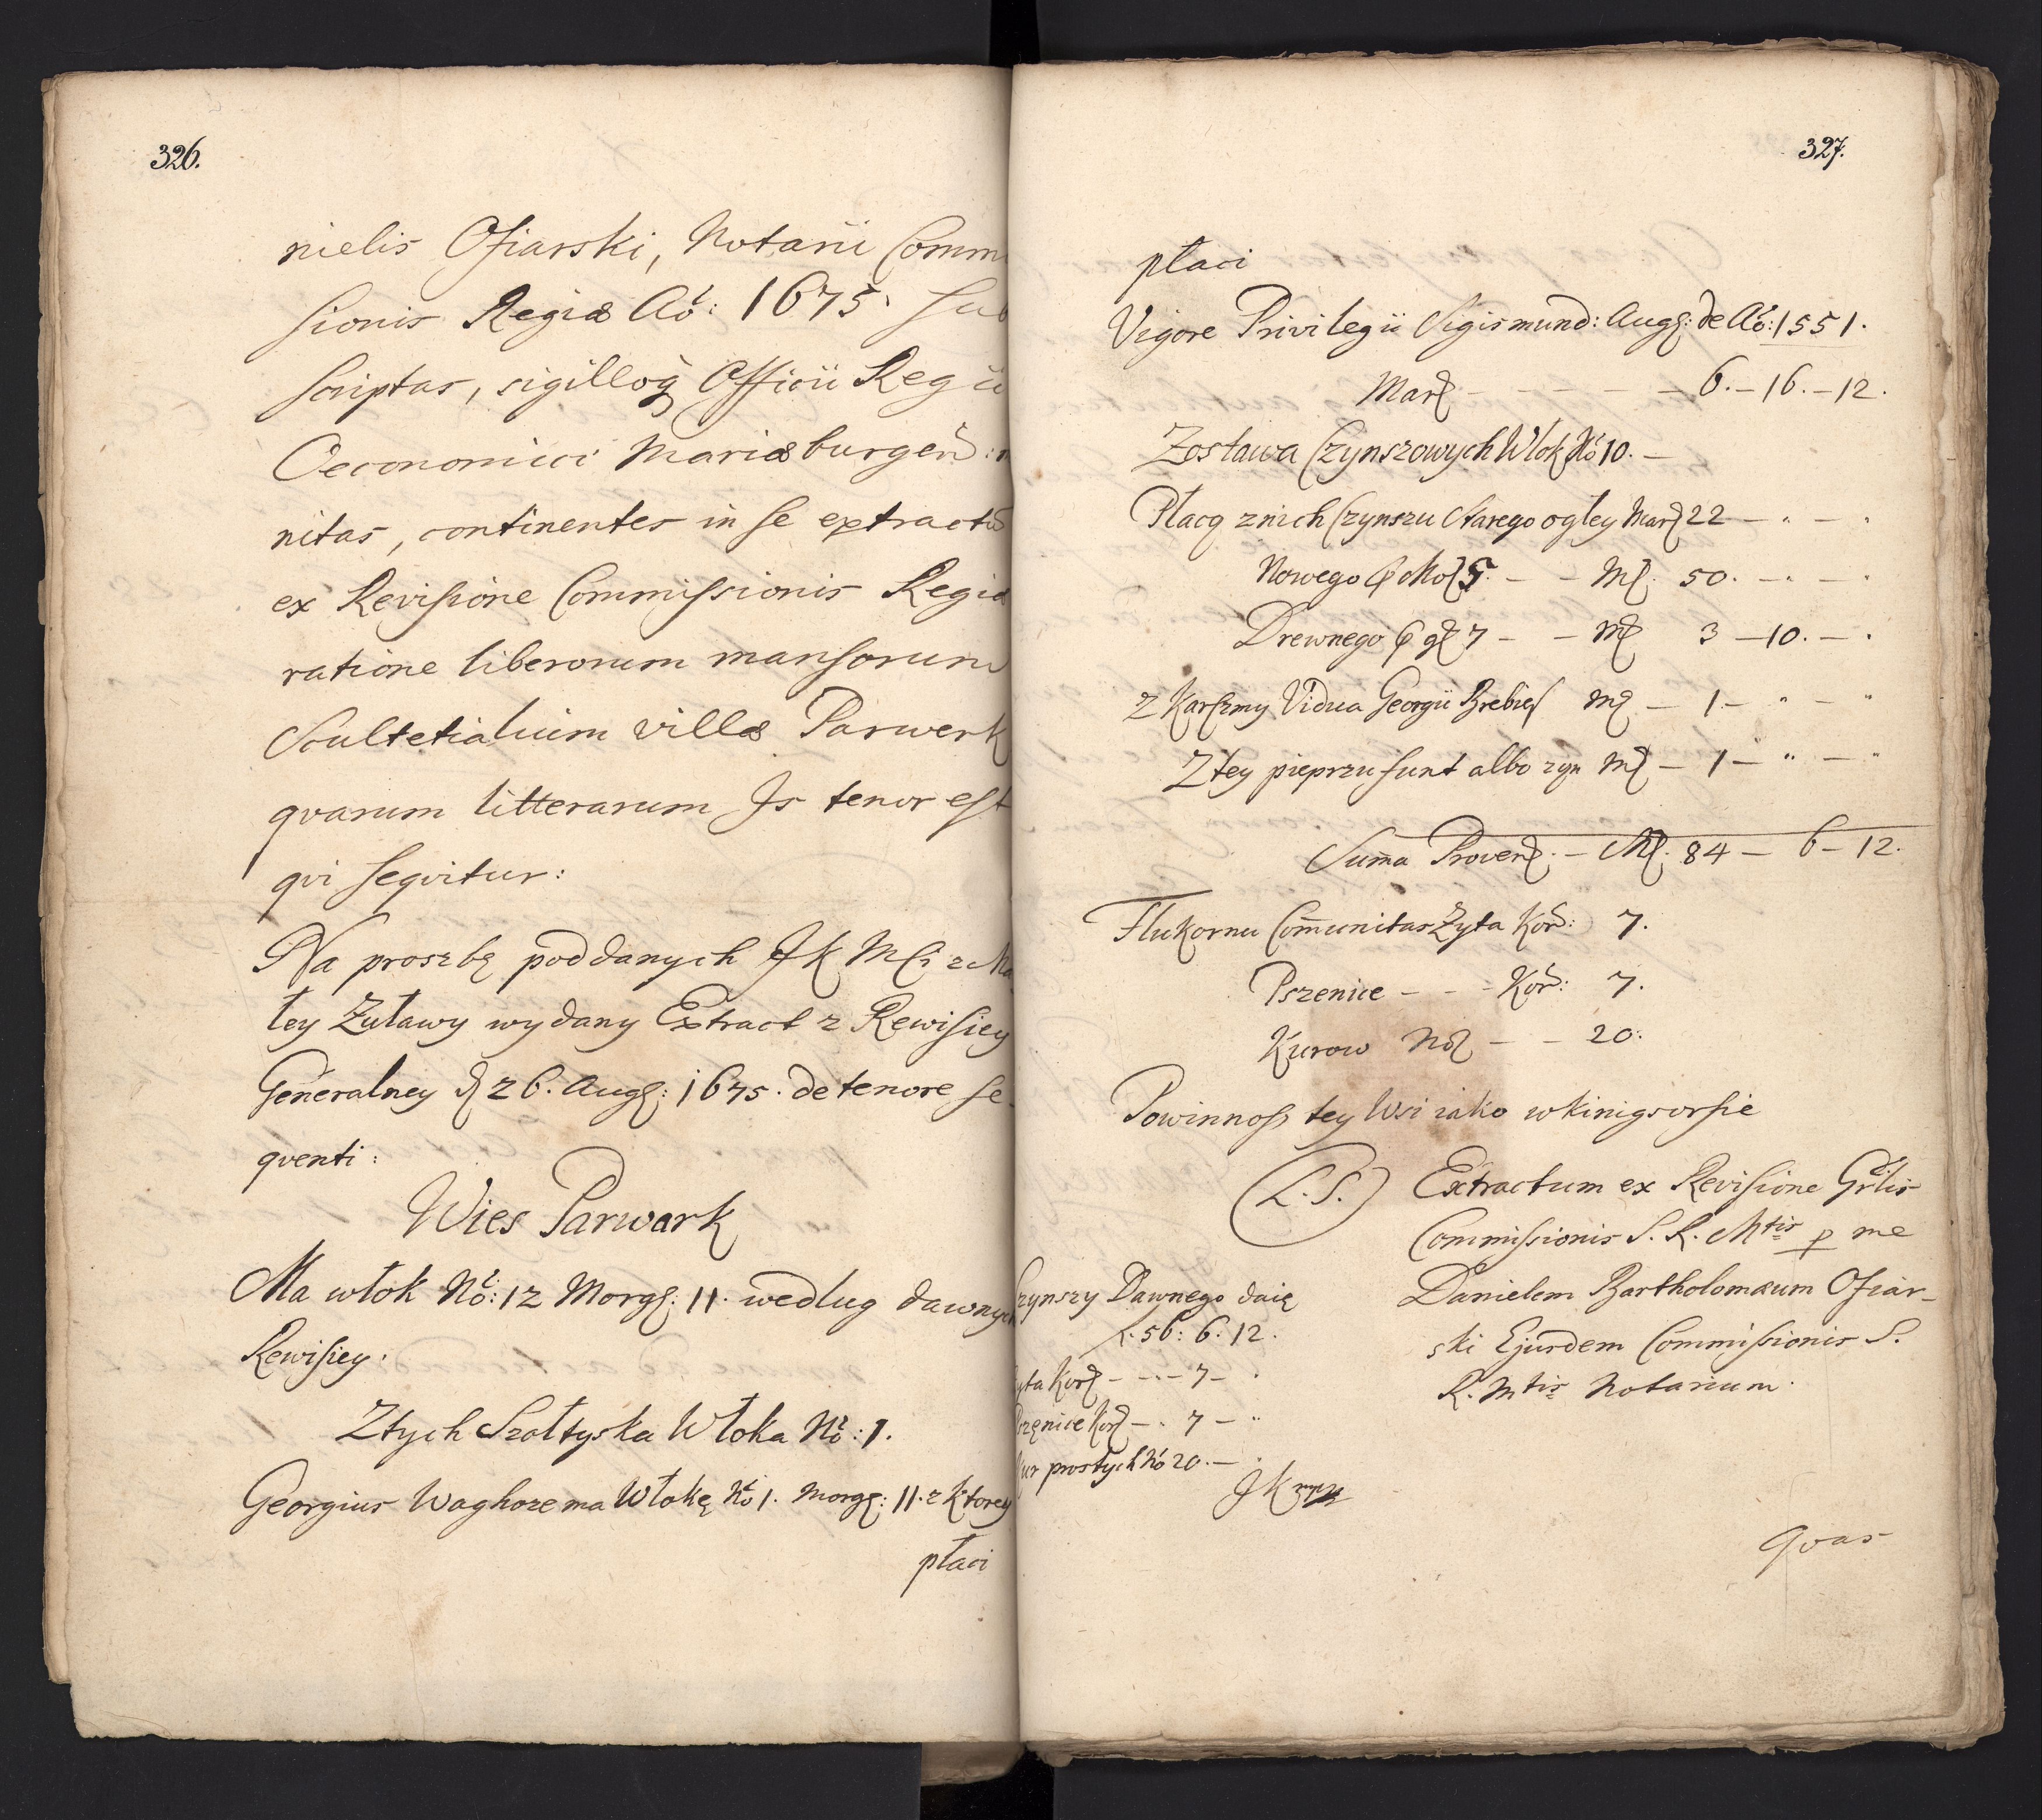 326.
nielis Ofiarski, Notarii Comm
sionis Regiæ Aõ: 1675. Sub
scriptas, sigilloq Officii Regii
Oeconomici Mariæburgen:
nitas, continentes in se extractu
ex Revisione Commissionis Regiæ
ratione liberorum mansorum
Scultetialium villæ Parwerk
qvarum litterarum Is tenor est
qvi seqvitur:
Na proszbę poddanych JK Mści z Ma
łey Żuławy wydany Extract z Rewisiey
Generalney d 26. Aug: 1675. de tenore se-
qventi:
Wies Parwark
Ma włok No: 12 Morg: 11. wedlug dawnych
Rewisiey.
Ztych Szołtyska Włoka No: 1.
Georgius Waghore ma Włokę No 1. Morg: 11. z ktorey
płaci
327.
płaci
Vigore Privilegii Sigismund: Aug: de Ao: 1551.
Mar - - - - - 6. - 16. - 12.
Zostawa Czynszowych Włok No 10. -
Płacą znich Czynszu Starego ogłey Mar 22 - " - "
Nowego Mo 5. - - M. 50. - " - "
Drewnego g 7 - - M 3 - 10. - .
z Karczmy Vidua Georgii Brebie M - 1 - " - "
Ztey pieprzu funt albo M - 1 - " - "
Suma Proven. - M. 84 - 6 - 12.
Flukornu Comunitas Żyta Kor: 7.
Pszenice - - - Kor: 7.
Kurow No - - 20.
Powinnosc tey Wsi iako wkinigsorsie
(L.S.)
Extractum ex Revisione Grlis
Commissionis S. R. Mtis p me
Danielem Bartholomæum Ofiar-
ski Ejusdem Commissionis S.
R. Mtis Notarium.
Czynszy Dawnego daię
56: 6. 12.
yta Kor - - - 7 - .
szenice Kor - . 7 - "
Kur prostych No 20. - .
JK mp
qvas